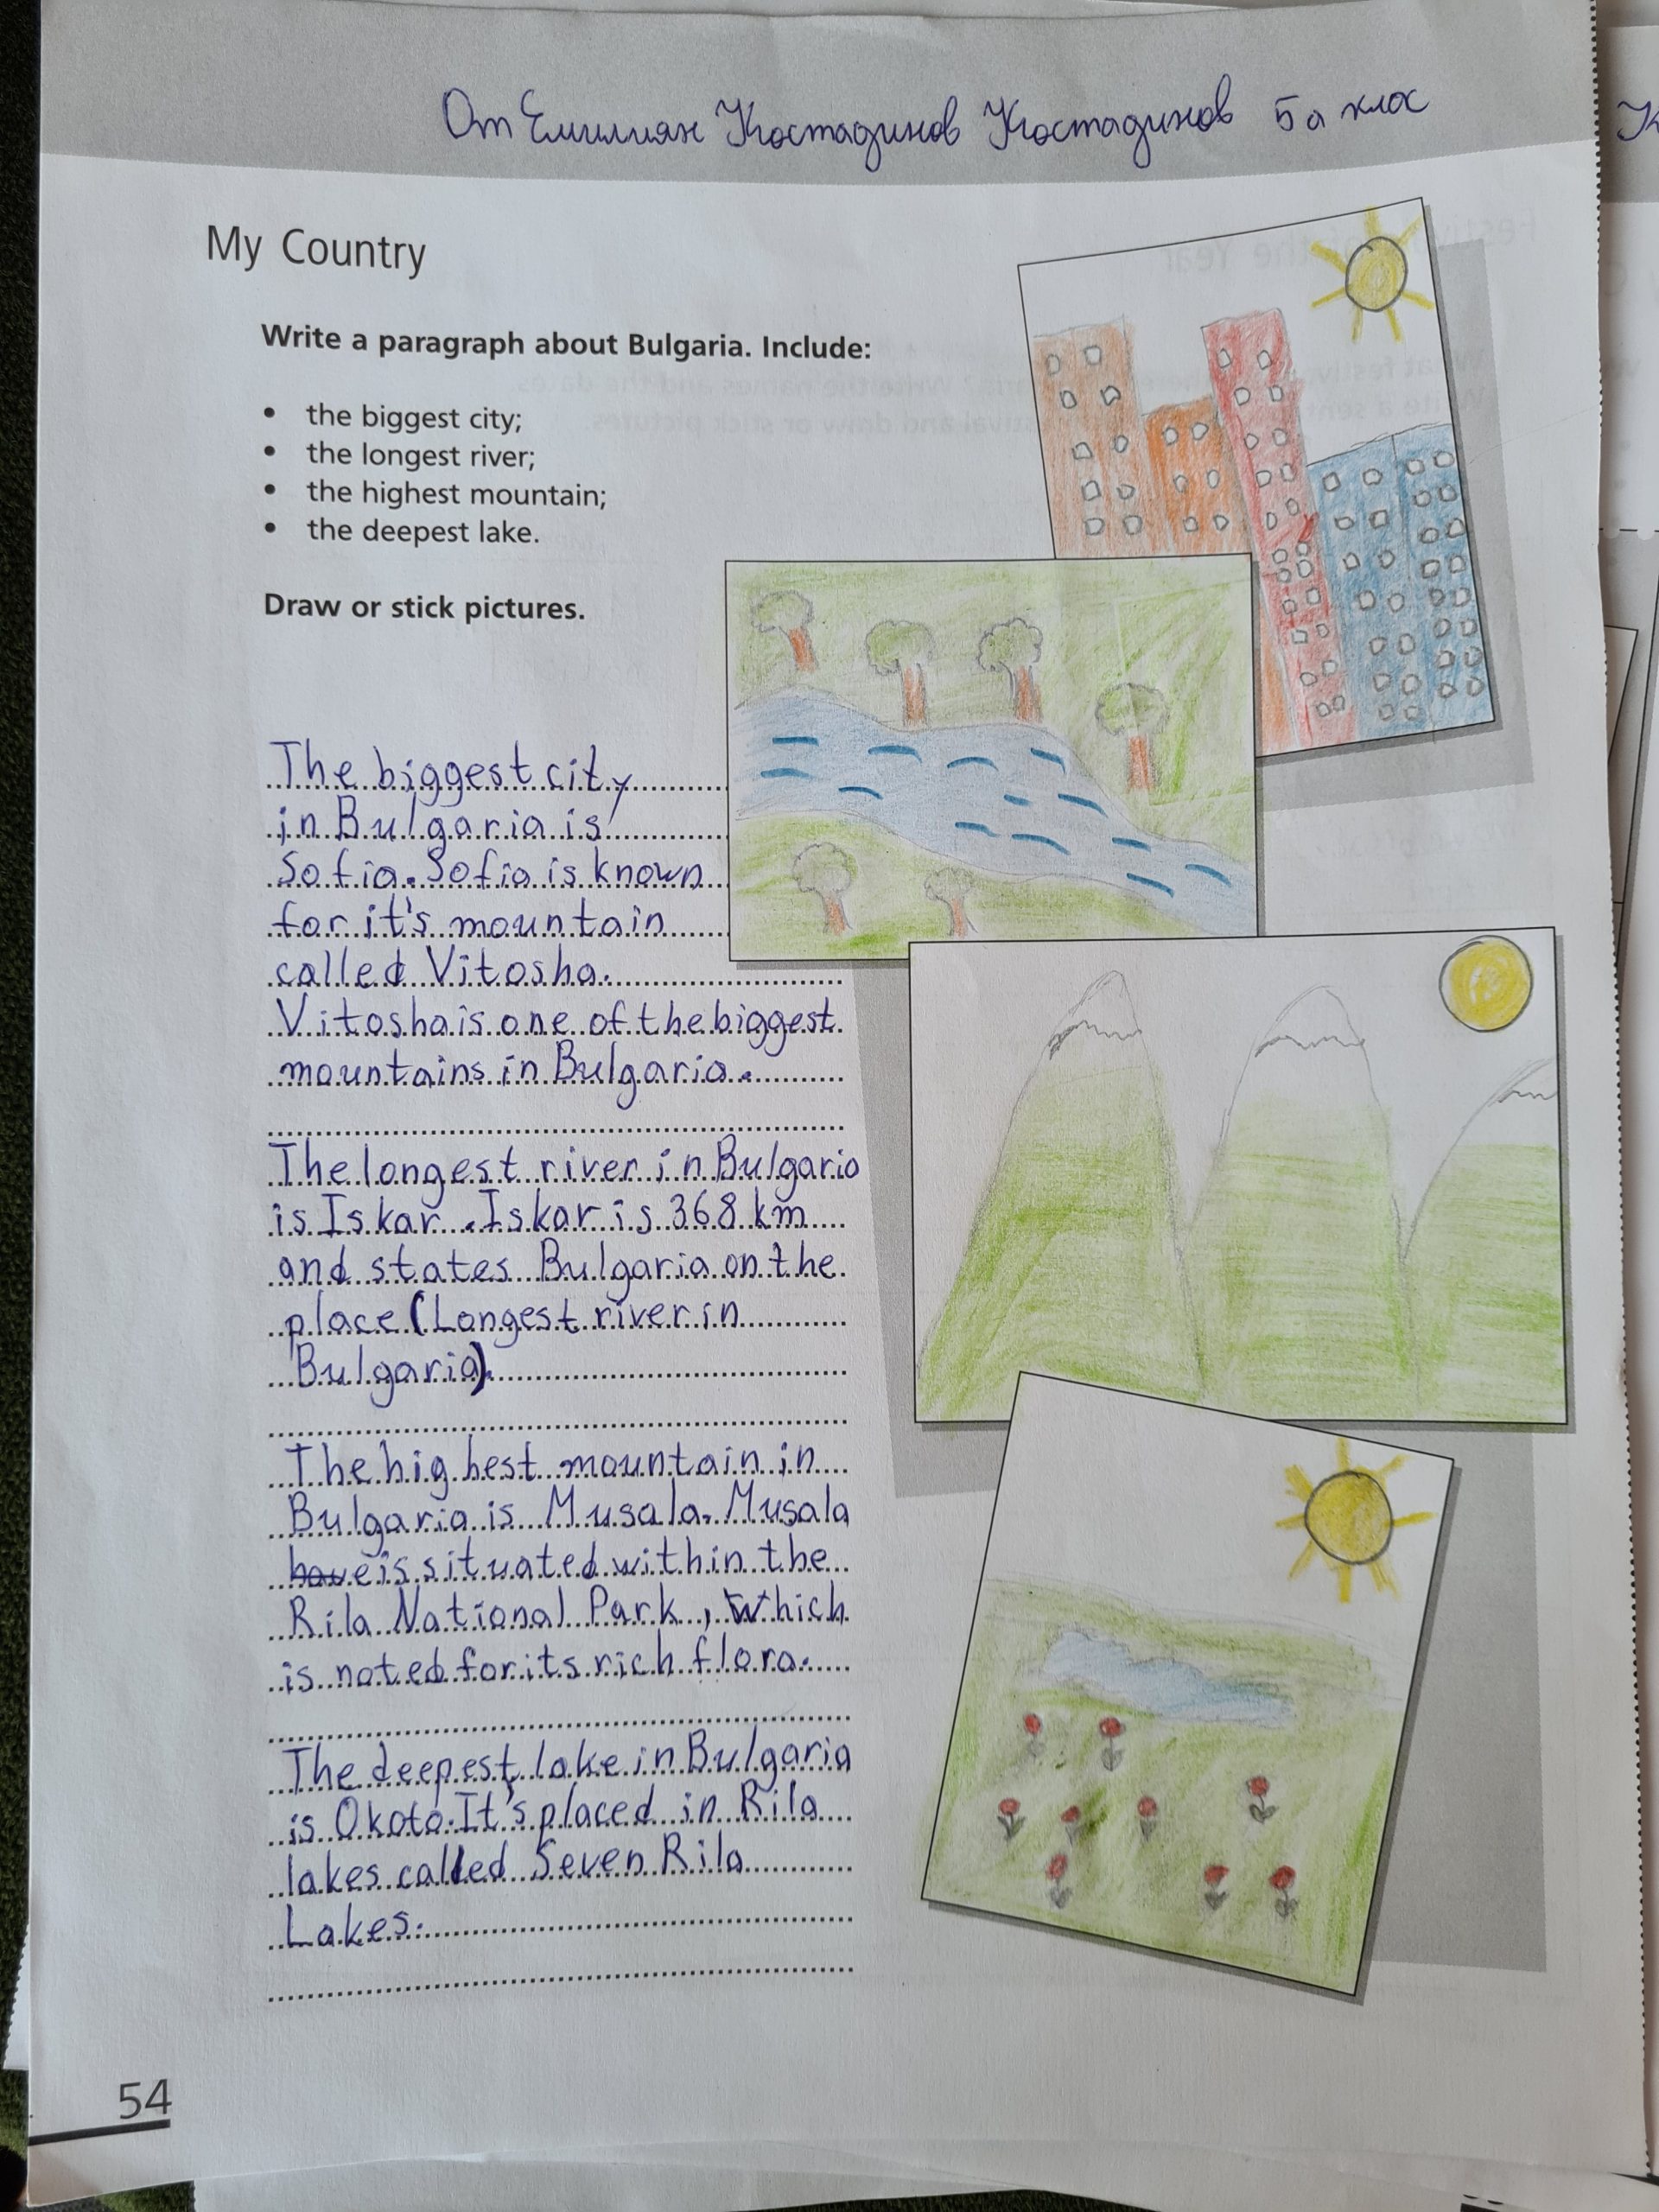 От Емилиян Костадинов Костадинов 5а клас
My Country
Write a paragraph about Bulgaria. Include:
• the biggest city;
• the longest river;
• the highest mountain;
• the deepest lake.
Draw or stick pictures.
The biggest city
in Bulgaria is
Sofia. Sofia is known
for it's mountain
called Vitosha.
Vitosha is one of the biggest
mountains in Bulgaria.
The longest river in Bulgaria
is Iskar. Iskar is 368 km
and states Bulgaria on the
place (Longest river in
Bulgaria).
The highest mountain in
Bulgaria is Musala. Musala
is situated within the
Rila National Park, which
is noted for its rich flora.
The deepest lake in Bulgaria
is Okoto. It's placed in Rila
lakes called Seven Rila
Lakes.
54